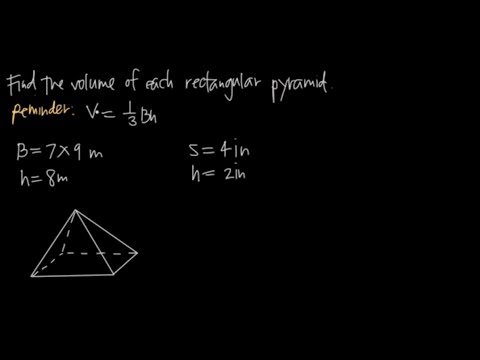 Find the volume of each rectangular pyramid.
Reminder: V = 1/3 Bh
B = 7 × 9 m
h = 8m
S = 4 in
h = 2in